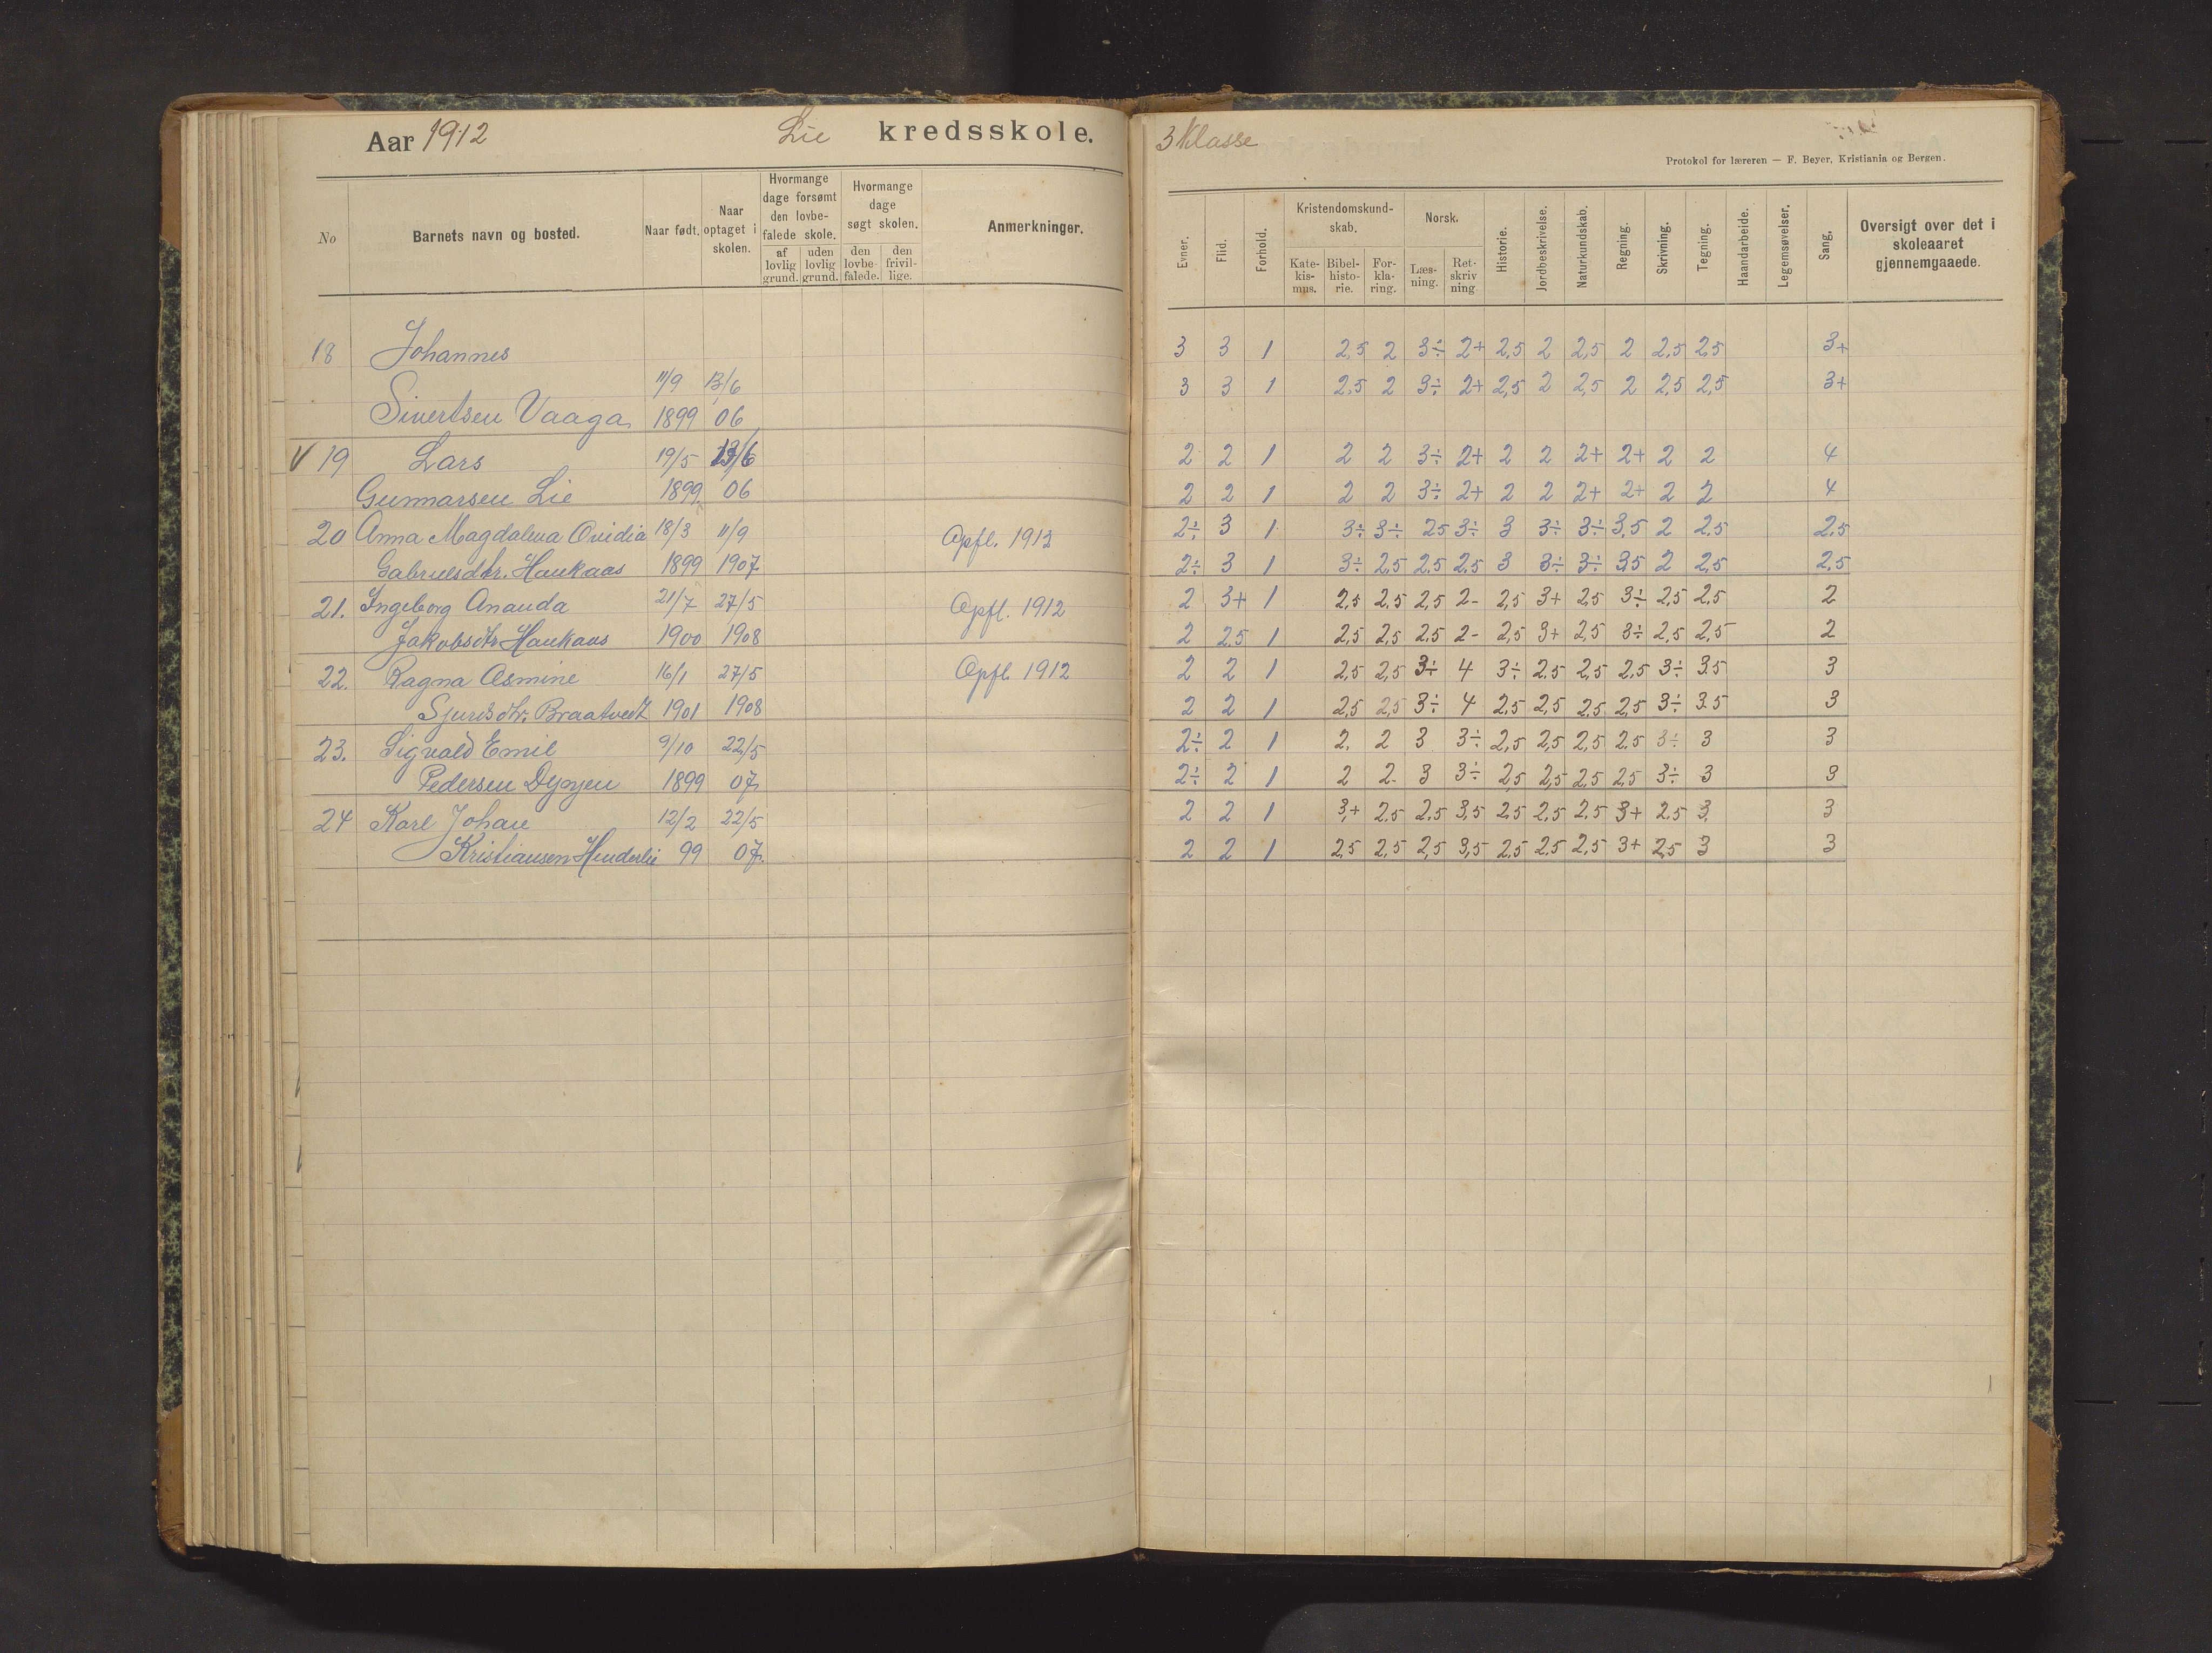 Aar 1912 Lie kredsskole.
No Barnets navn og bosted. Naar født. Naar optaget i skolen. Hvormange dage forsømt den lovbefalede skole. af lovlig grund. uden lovlig grund. Hvormange dage søgt skolen. den lovbefalede. den frivillige. Anmerkninger.
18 Johannes
11/9 13/6
Sivertsen Vaaga 1899 06
V 19 Lars 19/5 13/6
Gunnarsen Lie 1899 06
20 Anna Magdalena Ovidia 18/3 11/9 Opfl. 1912
Gabrielsdtr. Haukaas 1899 1907
21. Ingeborg Ananda 21/7 27/5 Opfl. 1912
Jakobsdtr Haukaas 1900 1908
22. Ragna Asmine 16/1 27/5 Opfl. 1912
Sjursdtr. Braatvedt 1901 1908
23. Sigvald Emil 9/10 22/5
Pedersen Dyøyen 1899 07
24 Karl Johan 12/2 22/5
Kristiansen Hinderlie 99 07.
3 Klasse
Protokol for læreren — F. Beyer, Kristiania og Bergen.
Evner. Flid. Forhold. Kristendomskundskab. Katekismus. Bibelhistorie. Forklaring. Norsk. Læsning. Retskrivning Historie. Jordbeskrivelse. Naturkundskab. Regning. Skrivning. Tegning. Haandarbeide. Legemsøvelser. Sang. Oversigt over det i skoleaaret gjennemgaaede.
3 3 1 2,5 2 3÷ 2+ 2,5 2 2,5 2 2,5 2,5 3+
3 3 1 2,5 2 3÷ 2+ 2,5 2 2,5 2 2,5 2,5 3+
2 2 1 2 2 3÷ 2+ 2 2 2+ 2+ 2 2 4
2 2 1 2 2 3÷ 2+ 2 2 2+ 2+ 2 2 4
2÷ 3 1 3÷ 3÷ 2,5 3÷ 3 3÷ 3÷ 3,5 2 2,5 2,5
2÷ 3 1 3÷ 2,5 2,5 2,5 3 3÷ 3÷ 3,5 2 2,5 2,5
2 3+ 1 2,5 2,5 2,5 2- 2,5 3+ 2,5 3÷ 2,5 2,5 2
2 2,5 1 2,5 2,5 2,5 2- 2,5 3+ 2,5 3÷ 2,5 2,5 2
2 2 1 2,5 2,5 3÷ 4 3÷ 2,5 2,5 2,5 3÷ 3,5 3
2 2 1 2,5 2,5 3÷ 4 2,5 2,5 2,5 2,5 3÷ 3,5 3
2÷ 2 1 2. 2 3 3÷ 2,5 2,5 2,5 2,5 3÷ 3 3
2÷ 2 1 2 2- 3 3÷ 2,5 2,5 2,5 2,5 3÷ 3 3
2 2 1 3+ 2,5 2,5 3,5 2,5 2,5 2,5 3+ 2,5 3 3
2 2 1 2,5 2,5 2,5 3,5 2,5 2,5 2,5 3+ 2,5 3 3